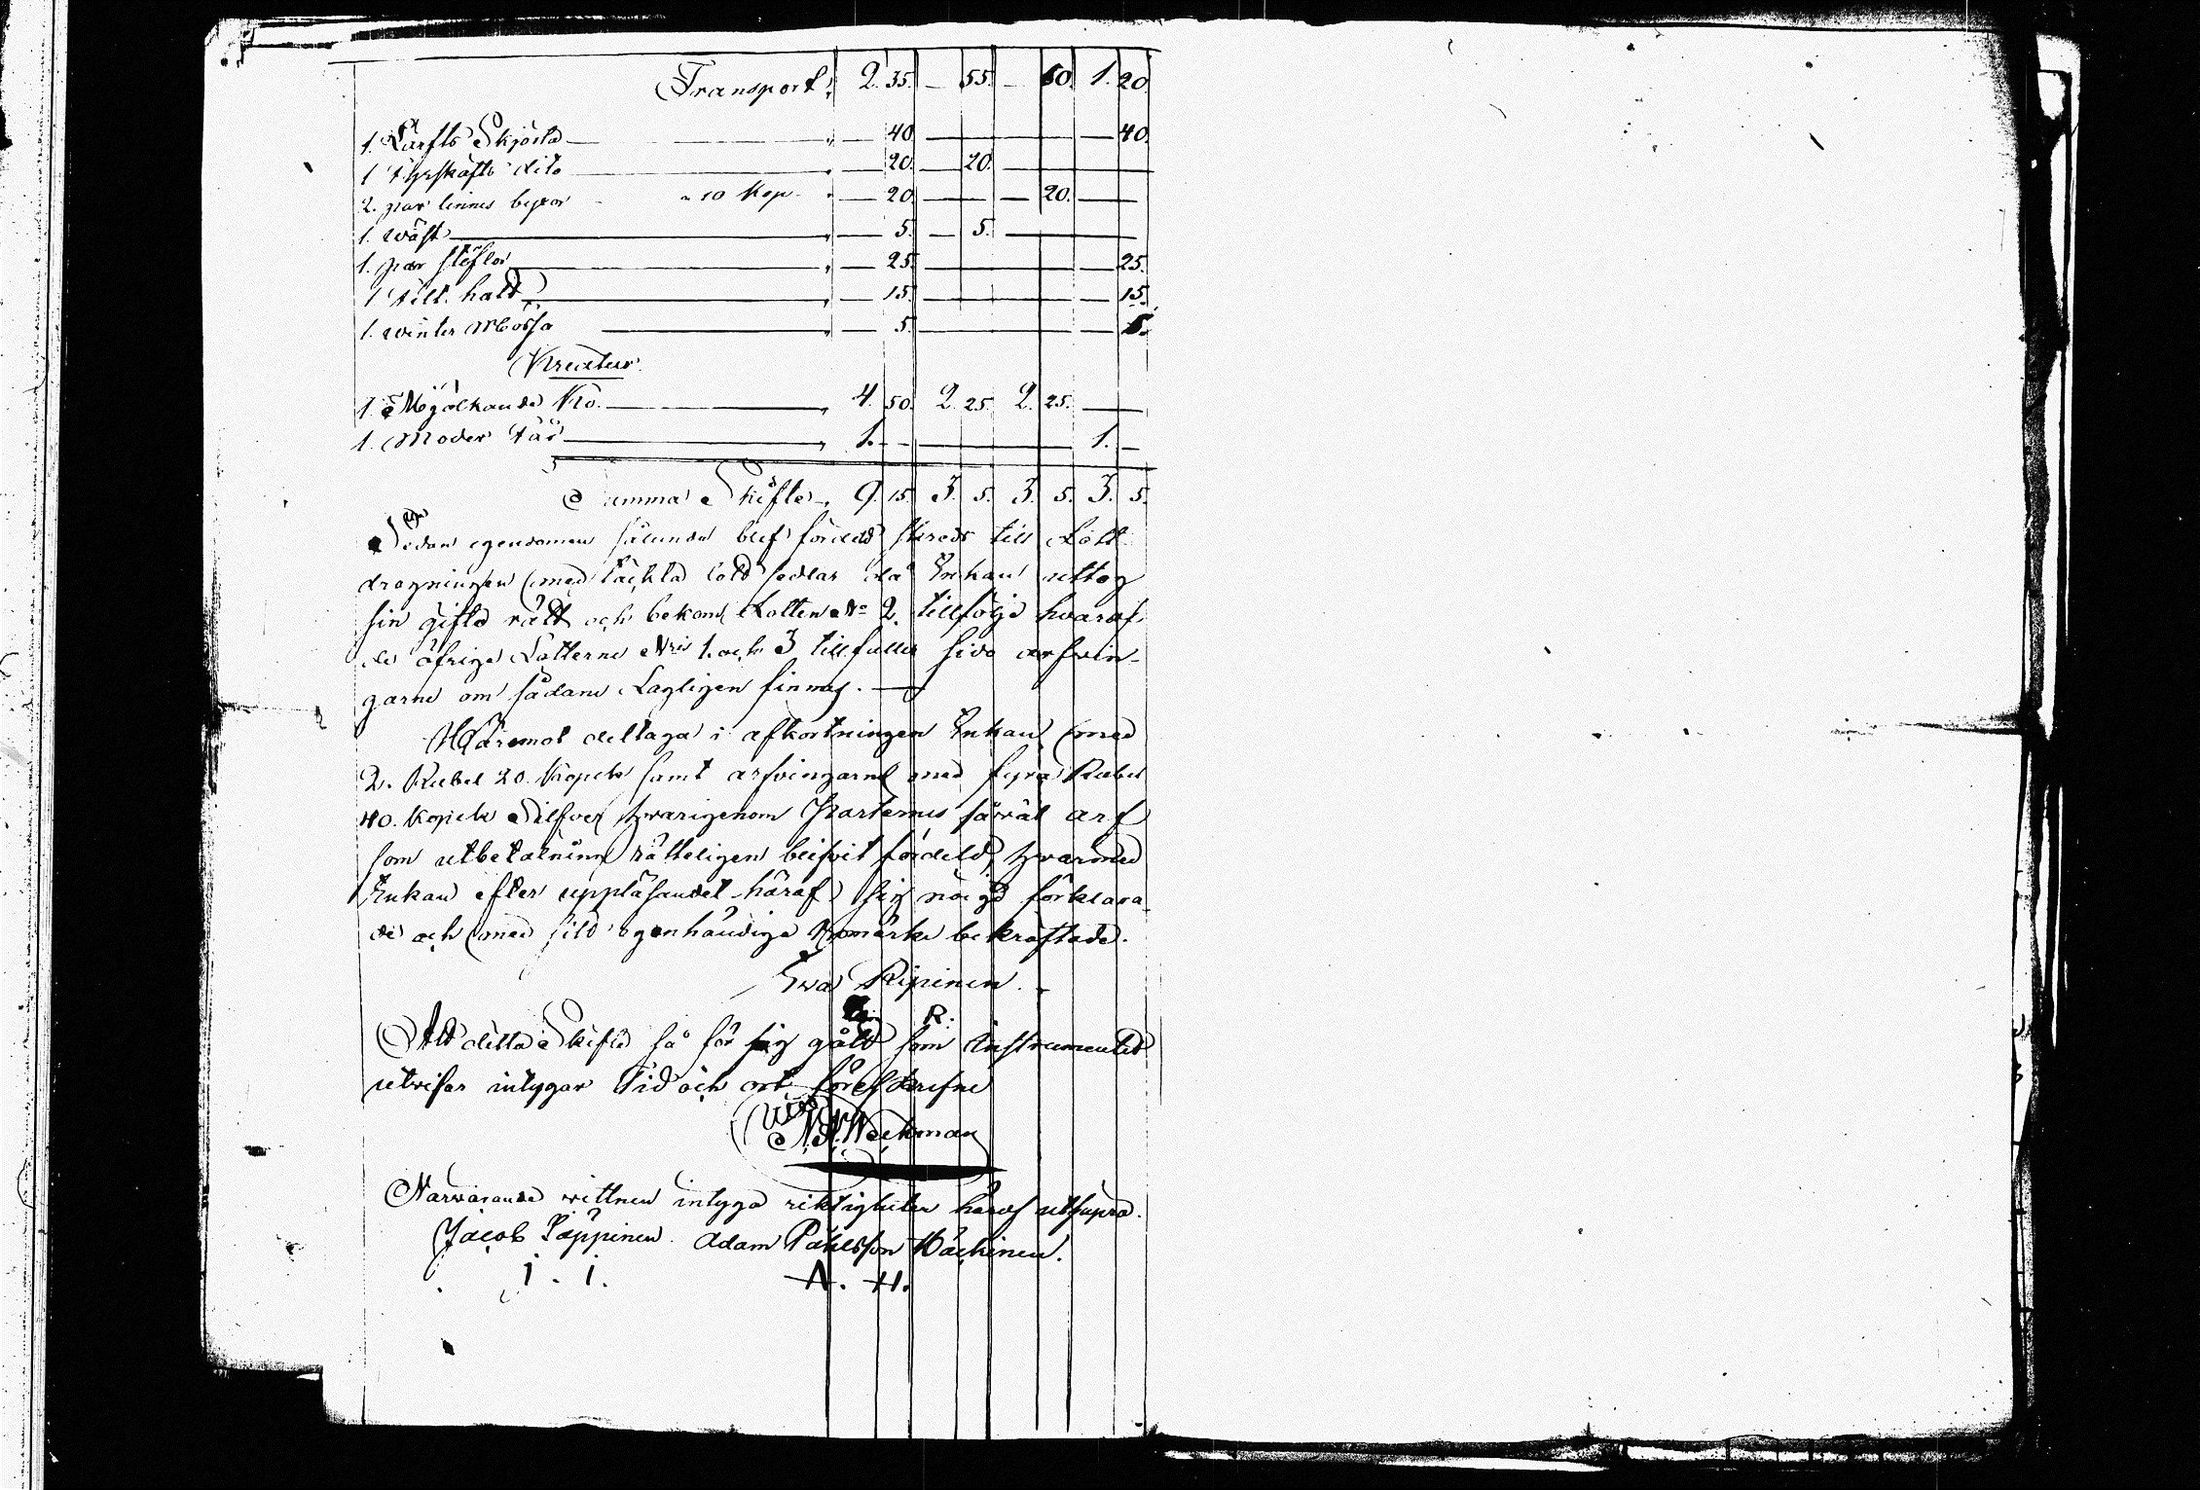 Transport, 2. 35. — 55. — 60. 1. 20.
1. Lärfts Skjorta — 40. — 40.
1 Fyrskafts dito — 20. 20. —
2. par linnes byxor a 10 Kop. — 20. — 20. —
1. wäst — 5. — 5. —
1. par stöflor — 25. — 25.
1 fillt. hatt — 15. — 15.
1. winter Mössa — 5. — 5.
Kreatur.
1. Mjölkande Ko. — 4. 50. 2. 25. 2. 25. —
1. Moder får — 1. — 1. —
Summa Skifte, 9. 15. 3. 5. 3. 5. 3. 5.
Sedan egendomen sålunda blef fördeld skreds till Lott
dragningen med täckta lott sedlar då Enkan uttog
sin gifto rätt och bekom Lotten No 2. tillfölje hvaraf
de öfrige Lotterne Nris 1. och 3 tillfaller sido arfwin-
garne om sådane Lagligen finnas. —
Häremot deltaga i afkortningen Enkan med
2. Rubel 20. Kopek samt arfvingarne med fyra Rubel
40. Kopek Silfver hwarigenom Parternes såwäl arf
som utbetalning rätteligen blifvit fördeld, hwarmed
Enkan efter uppläsandet häraf sig nöigd förklara-
de och med sitt egenhändiga bomärke bekräftade.
Ewa Ripinen.
R.
Att detta Skifte så för sig gått som Instrumentet
utvisar intygar Tid och ort föreskrefne
N. Weckman
Närwarande wittnen intyga riktigheten häraf utsupra.
Jacob Ihppinen. Adam Påhlsson Häckinen.
I. I. A. H.